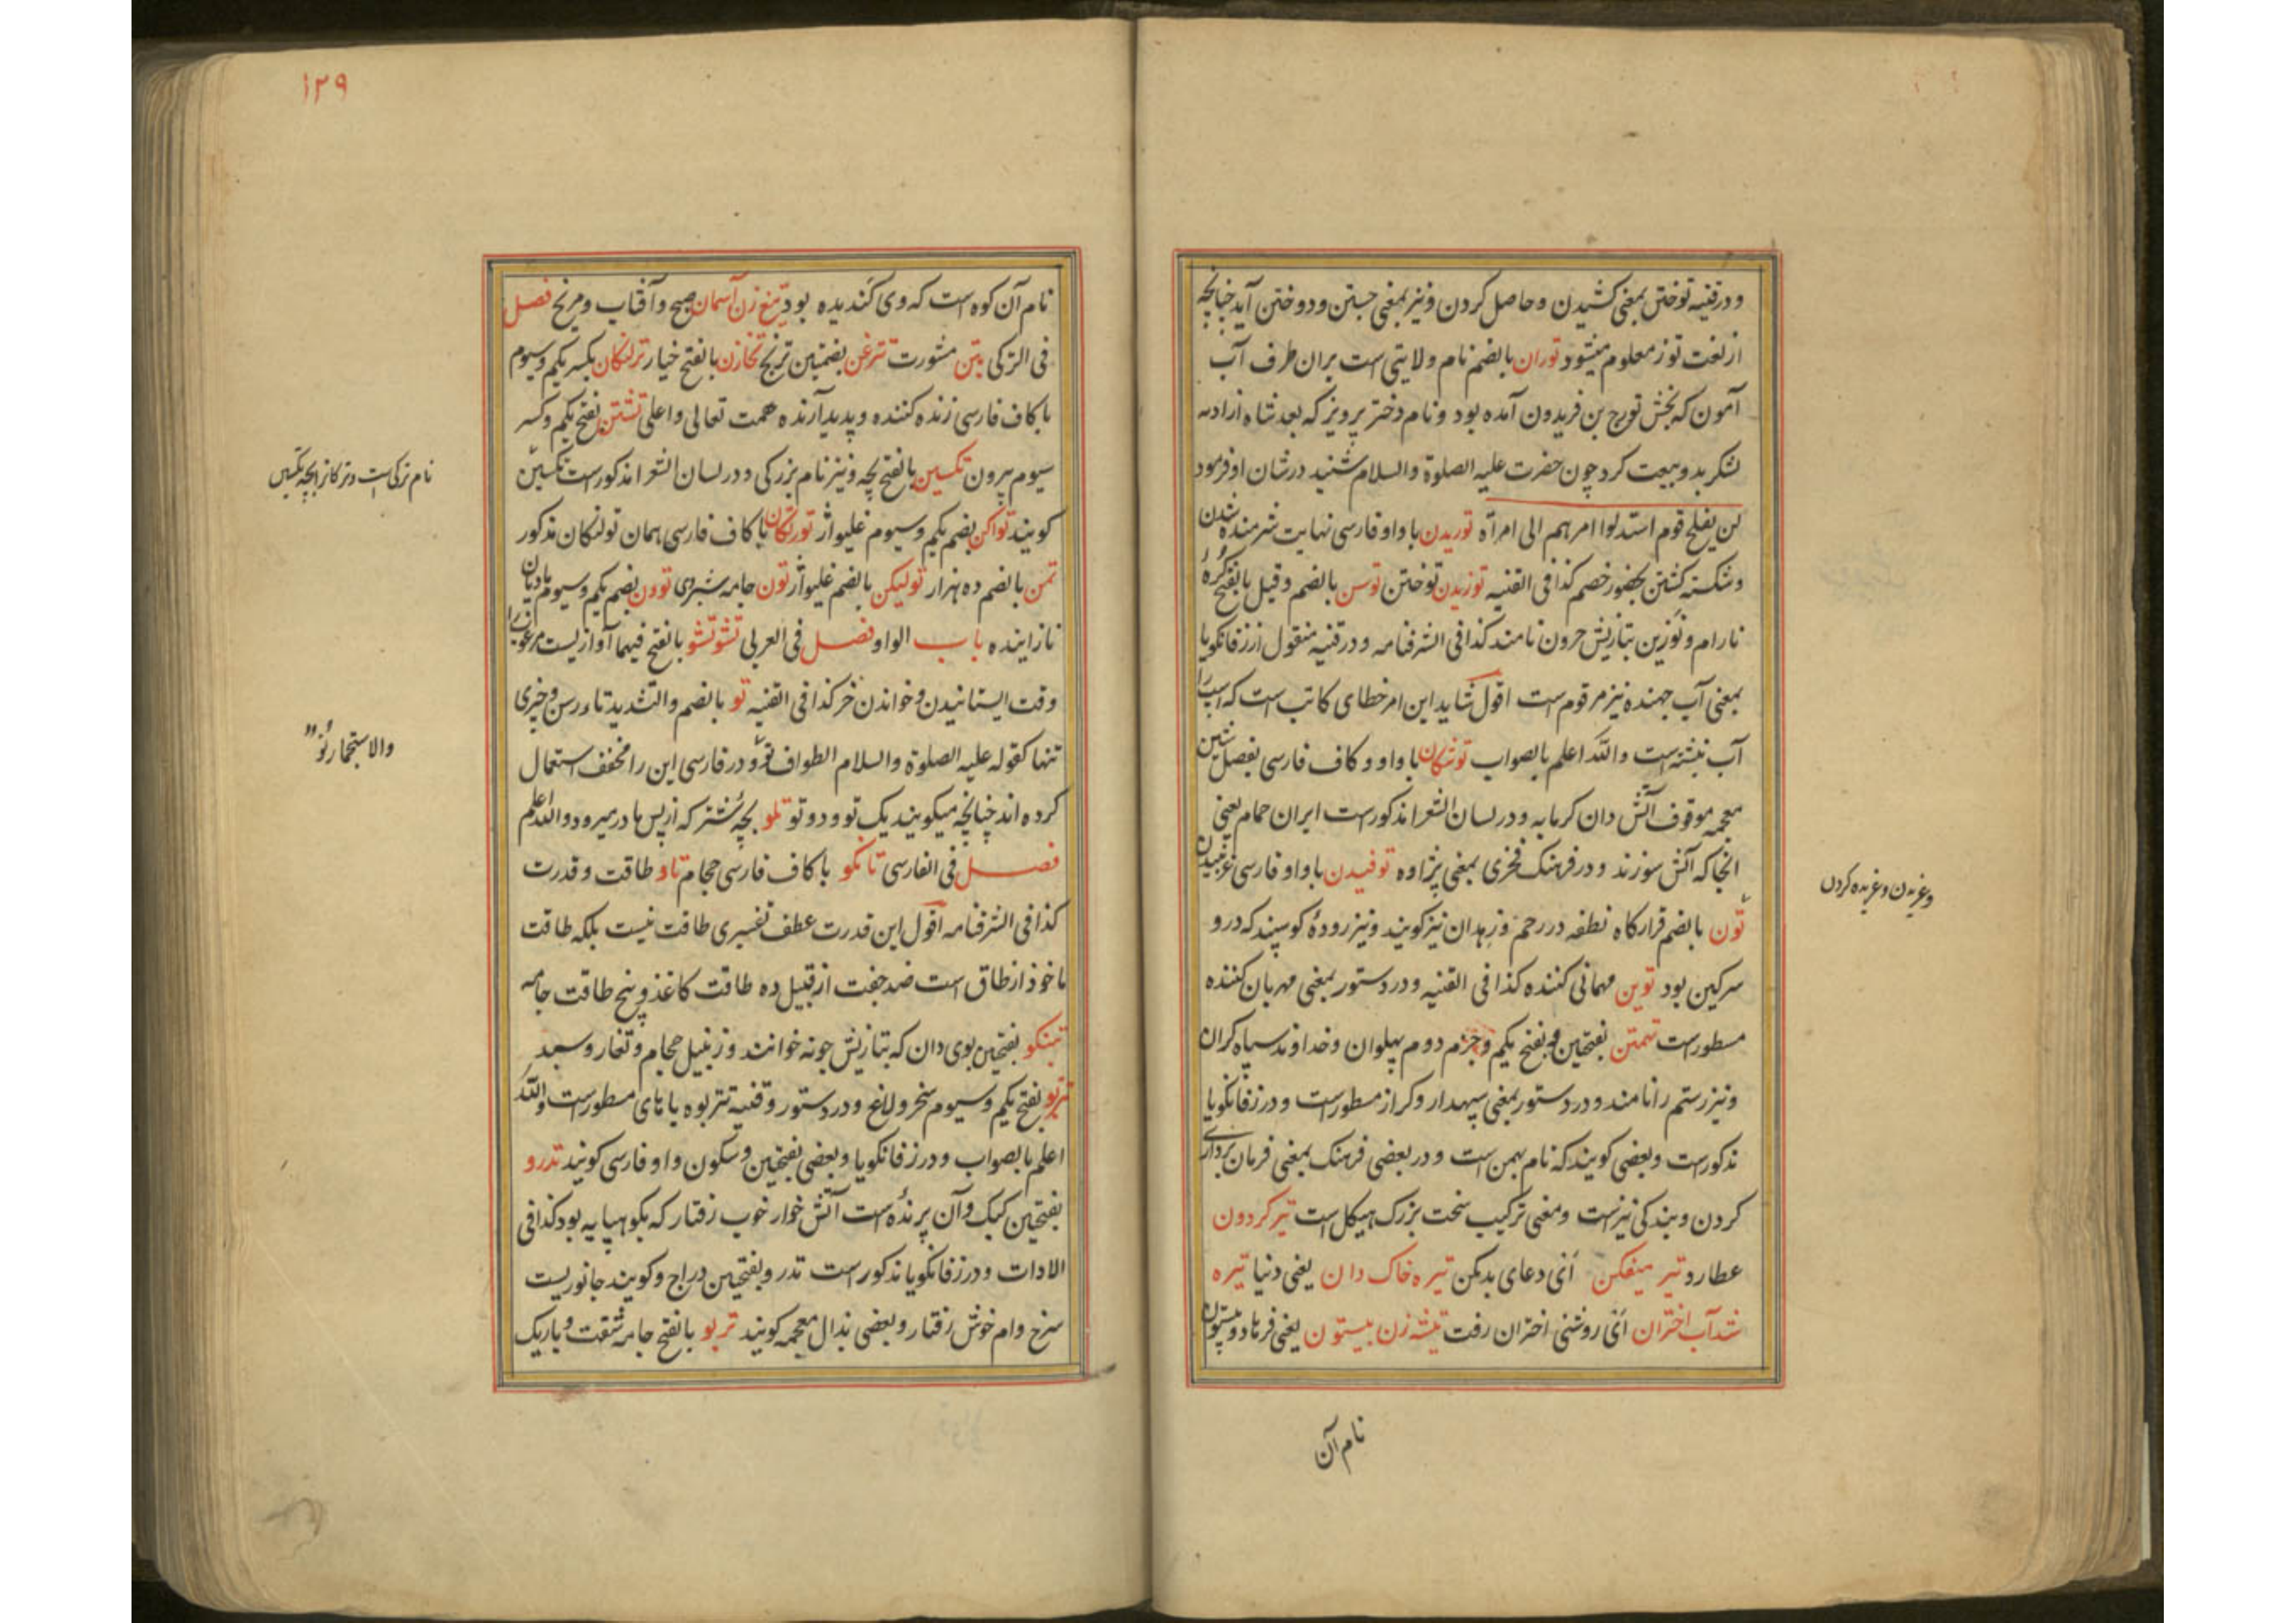 ودر قنیه توختن بمعنی کشیدن وحاصل کردن ونیز بمعنی جستن ودوختن آید چنانچه
از لغت توز معلوم میشود توران بالضم نام ولایتی است بران طرف آب
آمون که بخش تورج بن فریدون آمده بود ونام دختر پرویز که بعد شاه ازاد
لشکر بدو بیعت کرد چون حضرت علیه الصلوة والسلام شنید درشان او فرمود
لن یفلح قوم اسندلوا امرهم الی امرأة توریدن با واو فارسی نهایت شرمنده شدن
وشکسته کشتن بحضور خصم کذا فی القنیه توزیدن توختن توسن بالضم وقیل بالفتح کرهٔ
نارام ونوزین بتازیش حرون نامند کذا فی الشرفنامه ودر قنیه منقول از زفانکویا
بمعنی آب جهنده نیز مرقوم است اقول شاید این امر خطای کاتب است که اسپ را
آب نبشته است والله اعلم بالصواب توشکان با واو وکاف فارسی بفصل شین
معجمه موقوف آتش دان کرمابه ودر لسان الشعرا مذکور است ایران حمام یعنی
انجا که آتش سوزند ودر فرهنک فخری بمعنی پزاوه توفیدن با واو فارسی غرنبیدن
وغریدن وغریده کردن
تون بالضم قرارکاه نطفه در رحم وزهدان نیز کویند ونیز رودهٔ کوسپند که درو
سرکین بود توین مهمانی کننده کذا فی القنیه ودر دستور بمعنی مهربان کننده
مسطور است تهمتن بفتحتین وبفتح یکم وجزم دوم پهلوان وخداوند سپاه کران
ونیز رستم را نامند ودر دستور بمعنی سپهدار وکراز مسطور است ودر زفانکویا
مذکور است وبعضی کویند که نام بهمن است ودر بعضی فرهنک بمعنی فرمان برداری
کردن وبندکی نیز است ومعنی ترکیب سخت بزرک هیکل است تیر کردون
عطارد تیر میفکن ای دعای بد مکن تیره خاک دان یعنی دنیا تیره
شد آب اختران ای روشنی اختران رفت تیشه زن بیستون یعنی فرهاد وبیستون
نام آن
۱۲۹
نام آن کوه است که وی کندیده بود تیغ زن آسمان صبح وآفتاب ومریخ فصل
فی الترکی بتن مشورت ترغن بضمتین ترنج تخازن بالفتح خیار ترلنکان بکسر یکم وسیوم
با کاف فارسی زنده کننده وپدید آرنده همت تعالی واعلی تشتن بفتح یکم وکسر
سیوم بیرون تکسین بالفتح بچه ونیز نام بزرکی ودر لسان الشعرا مذکور است تکسین
نام ترکی است وترکانرا بچه تکسین
کویند تواکن بضم یکم وسیوم غلیواژ تورنکان با کاف فارسی همان تولنکان مذکور
تمن بالضم ده هزار تولیکن بالضم غلیواژ تون جامه شبروی توون بضم یکم وسیوم مادیان
نازاینده باب الواو فصل فی العربی تشوتشو بالفتح فیهما آوازیست مرغوبرا
وقت ایستانیدن وخواندن خر کذا فی القنیه تو بالضم والتشدید تاء رسن وچیزی
تنها کقوله علیه الصلوة والسلام الطواف تو ودر فارسی این را مخفف استعمال
والاستجمار تو
کرده اند چنانچه میکویند یک تو ودو تو تلو بچهٔ شتر که از پس مادر میرود والله اعلم
فصل فی الفارسی تانکو با کاف فارسی حجام تاو طاقت وقدرت
کذا فی الشرفنامه اقول این قدرت عطف تفسیری طاقت نیست بلکه طاقت
ماخوذ از طاق است ضد جفت از قبیل ده طاقت کاغذ وپنج طاقت جامه
تبنکو بفتحتین بوی دان که بتازیش جونه خوانند وزنبیل حجام وتغار وسبد
تربو بفتح یکم وسیوم سخر ولاغ ودر دستور وقنیه تتربوه با تای مسطور است والله
اعلم بالصواب ودر زفانکویا وبعضی بفتحتین وسکون واو فارسی کویند تدرو
بفتحتین کبک وآن پرندهٔ است آتش خوار خوب رفتار که بکوهپایه بود کذا فی
الادات ودر زفانکویا مذکور است تدرو بفتحتین دراج وکویند جانوریست
سرخ وام خوش رفتار وبعضی بذال معجمه کویند تربو بالفتح جامه شفت وباریک